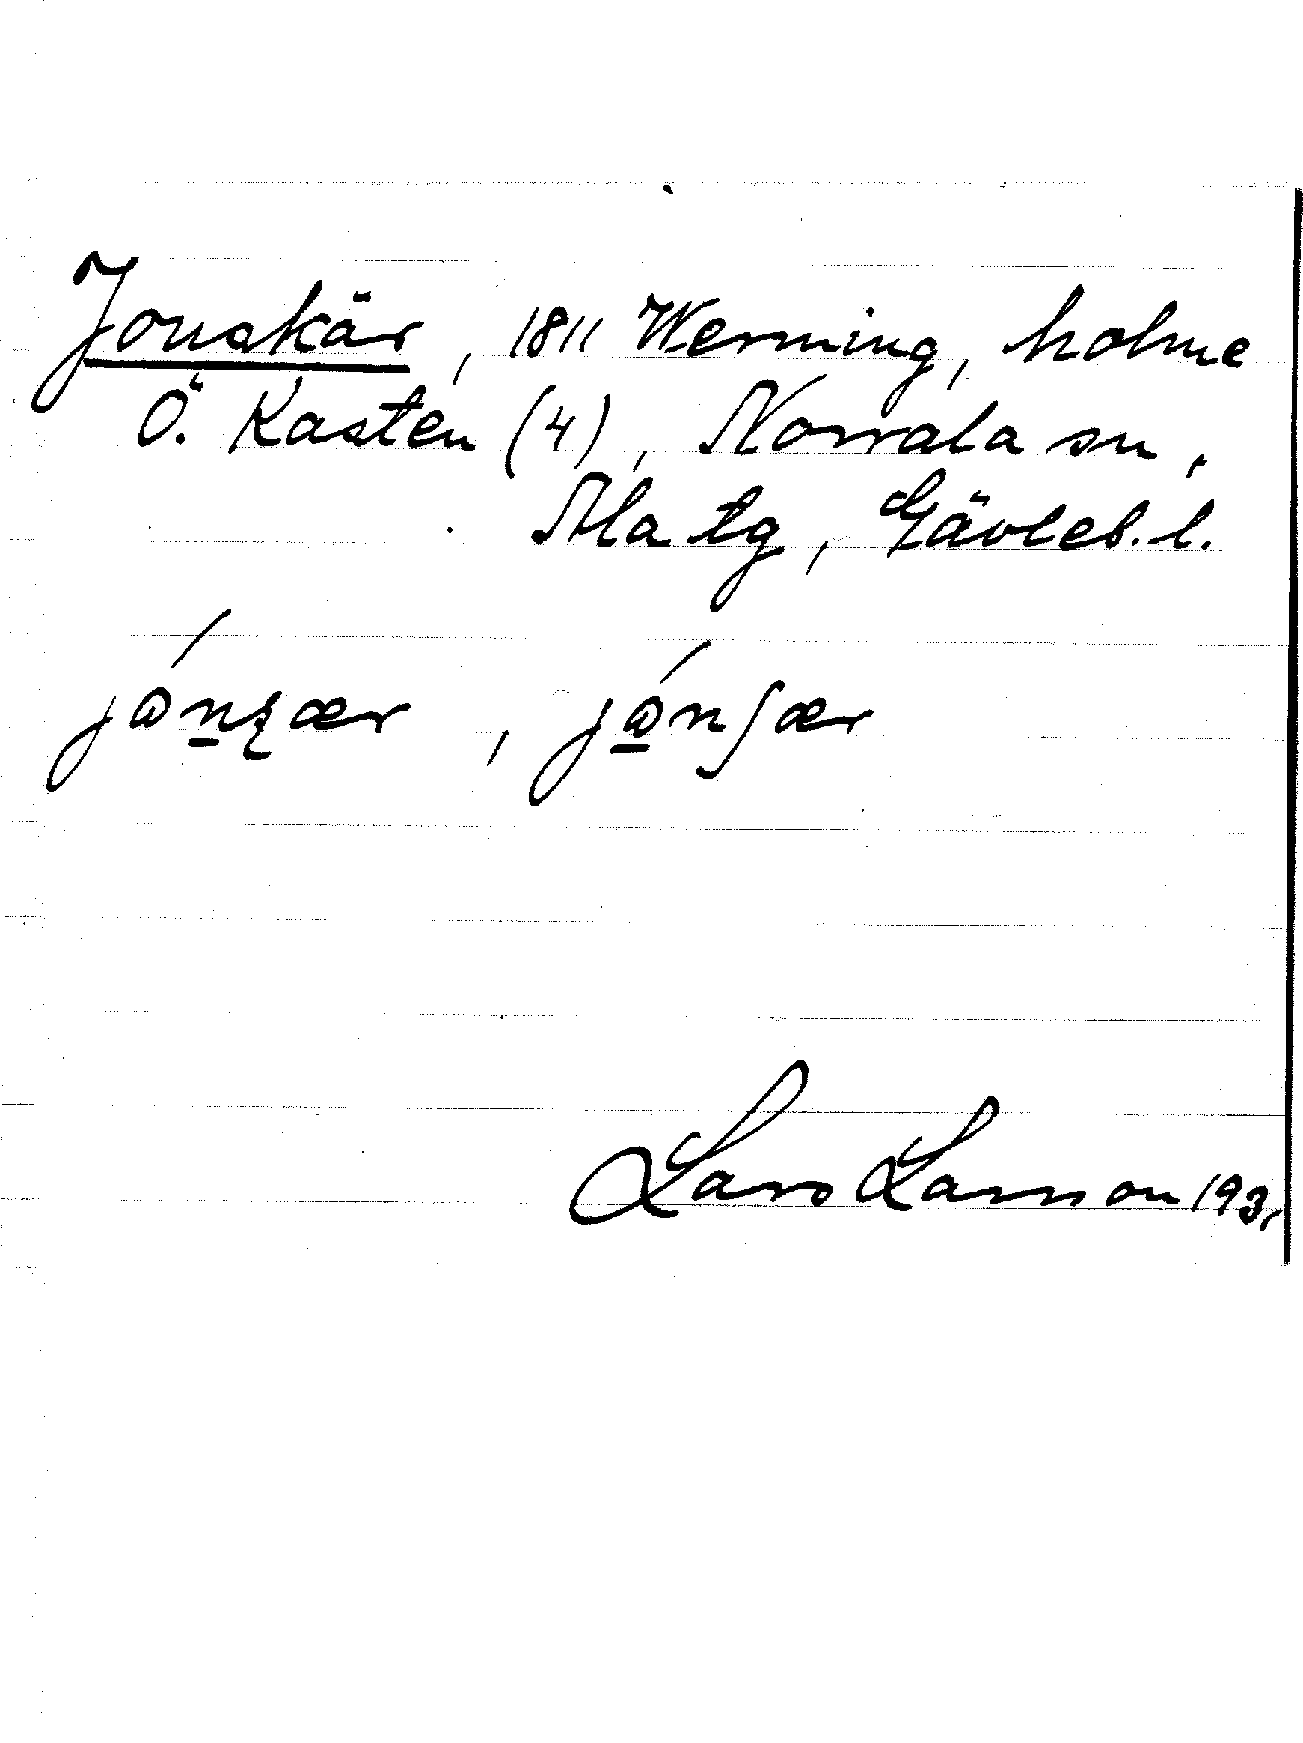 Jonskär, 1811 Werming, holme
Ö. Kasten (4), Norrala sn,
Ala tg, Gävleb. l.
jón̲ʂær, jó̲nʃær
Lars Larsson 193